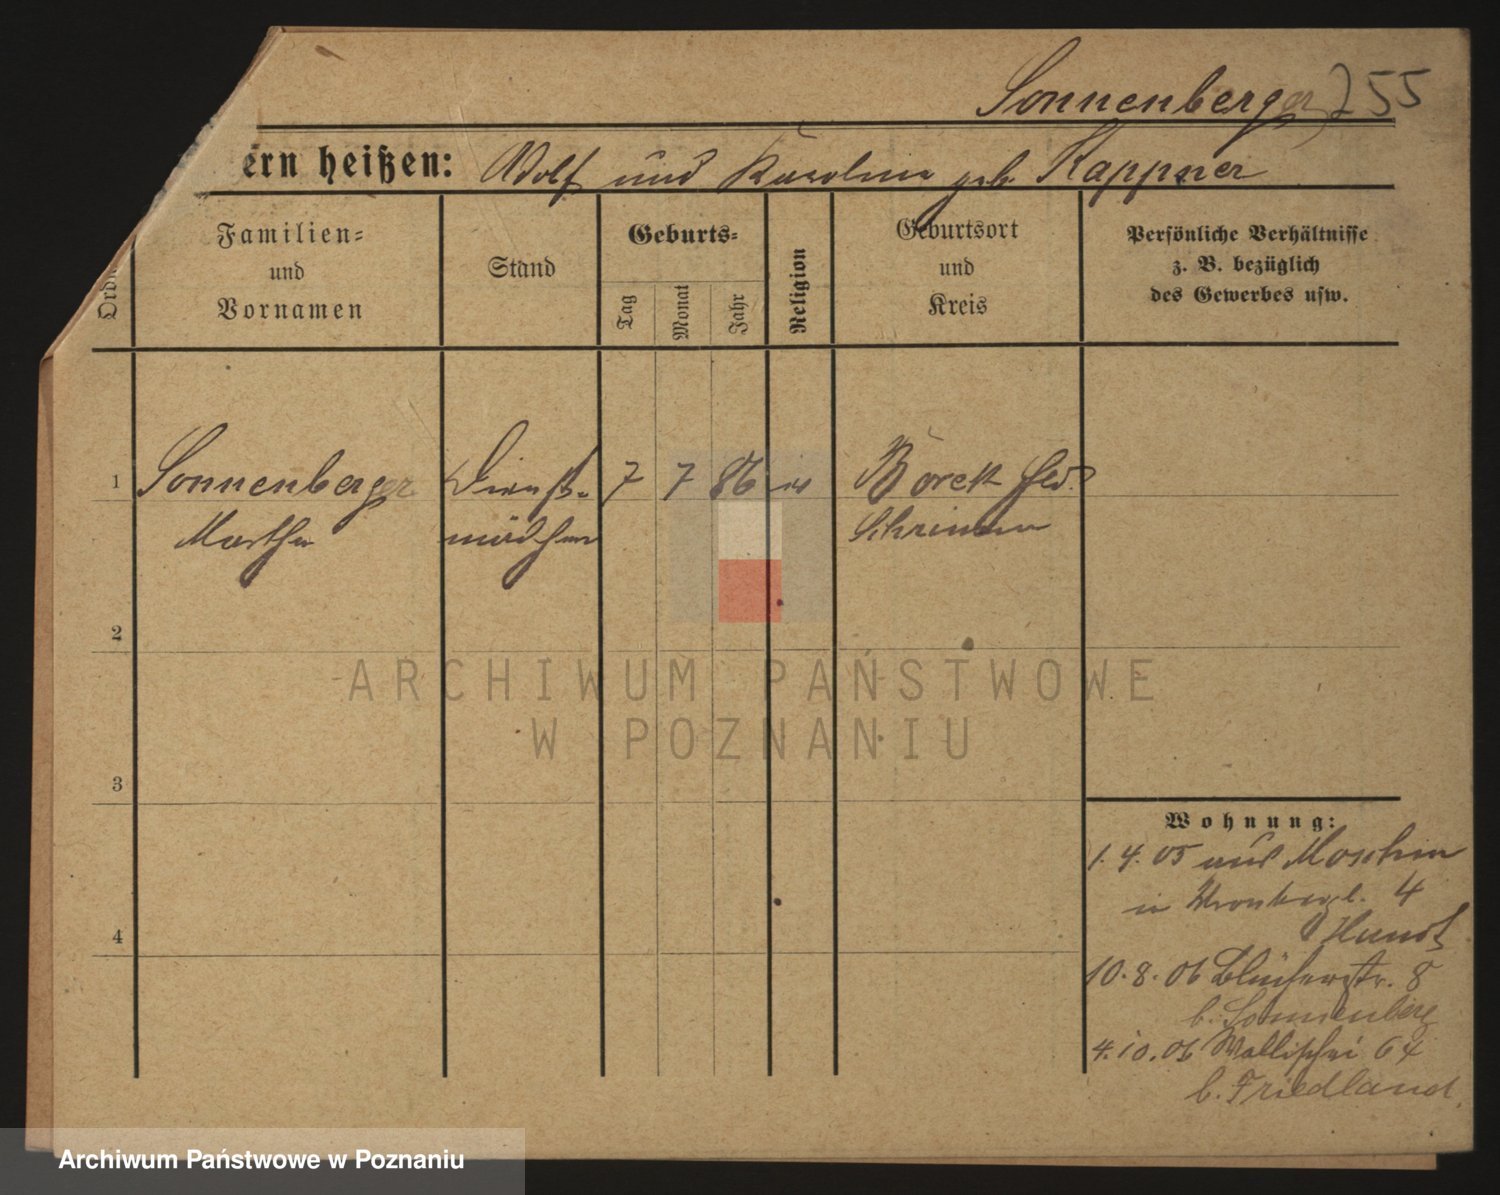 Sonnenberger 255
ern heißen: Wolf und Karoline geb. Kappner
Familien=
und
Vornamen
Stand
Geburts=
Tag
Monat
Jahr
Religion
Geburtsort
und
Kreis
Persönliche Verhältnisse
z. B. bezüglich
des Gewerbes usw.
1 Sonnenberger Dienst- 7 7 86 Borek
Martha mädchen Schrimm
2
3
4
Wohnung:
1. 4. 05 aus Moschin
in 4
10. 8. 06 Blücherstr. 8
b. Sonnenberg
4. 10. 06 Wallischei 64
b. Friedland
ARCHIWUM PAŃSTWOWE
W POZNANIU
Archiwum Państwowe w Poznaniu